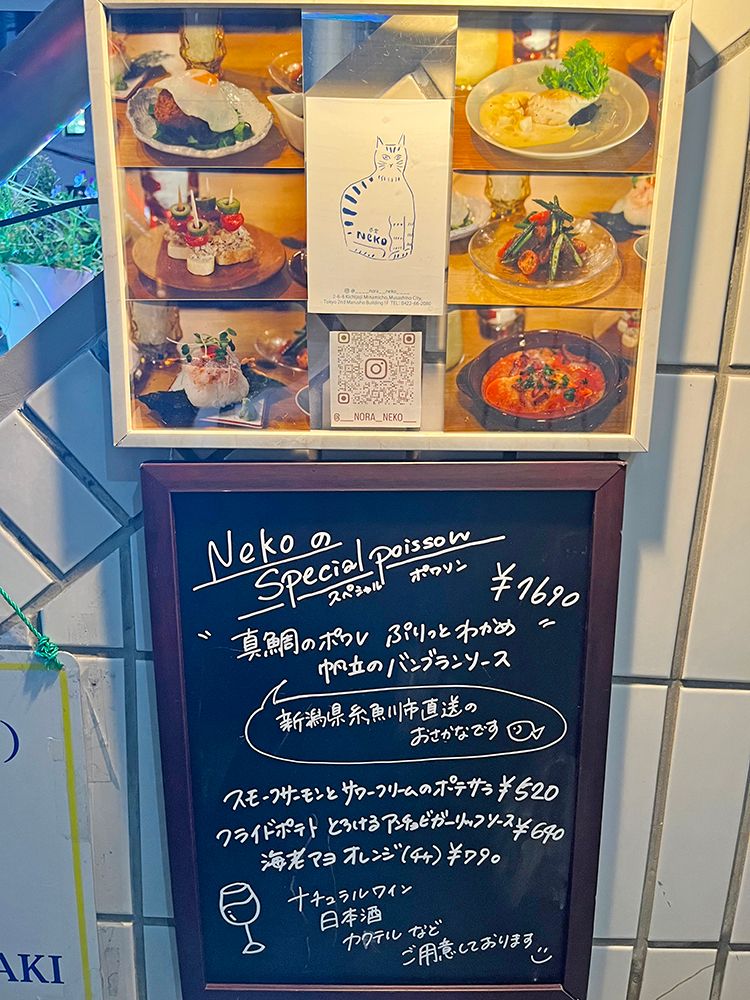 のら
Neko
@___nora__neko____
2-8-6 Kichijoji Minamicho, Musashino City,
Tokyo 2nd Marusho Building 1F TEL: 0422-66-2080
@___NORA__NEKO___
Nekoの
Special poisson
スペシャル ポワソン
¥1690
"真鯛のポワレ ぷりっとわかめ
帆立のバンブランソース"
新潟県糸魚川市直送の
おさかなです
スモークサーモンとサワークリームのポテサラ ¥520
フライドポテト とろけるアンチョビガーリックソース ¥640
海老マヨ オレンジ(チケ) ¥790
ナチュラルワイン
日本酒
カクテル など
ご用意しております
)
AKI